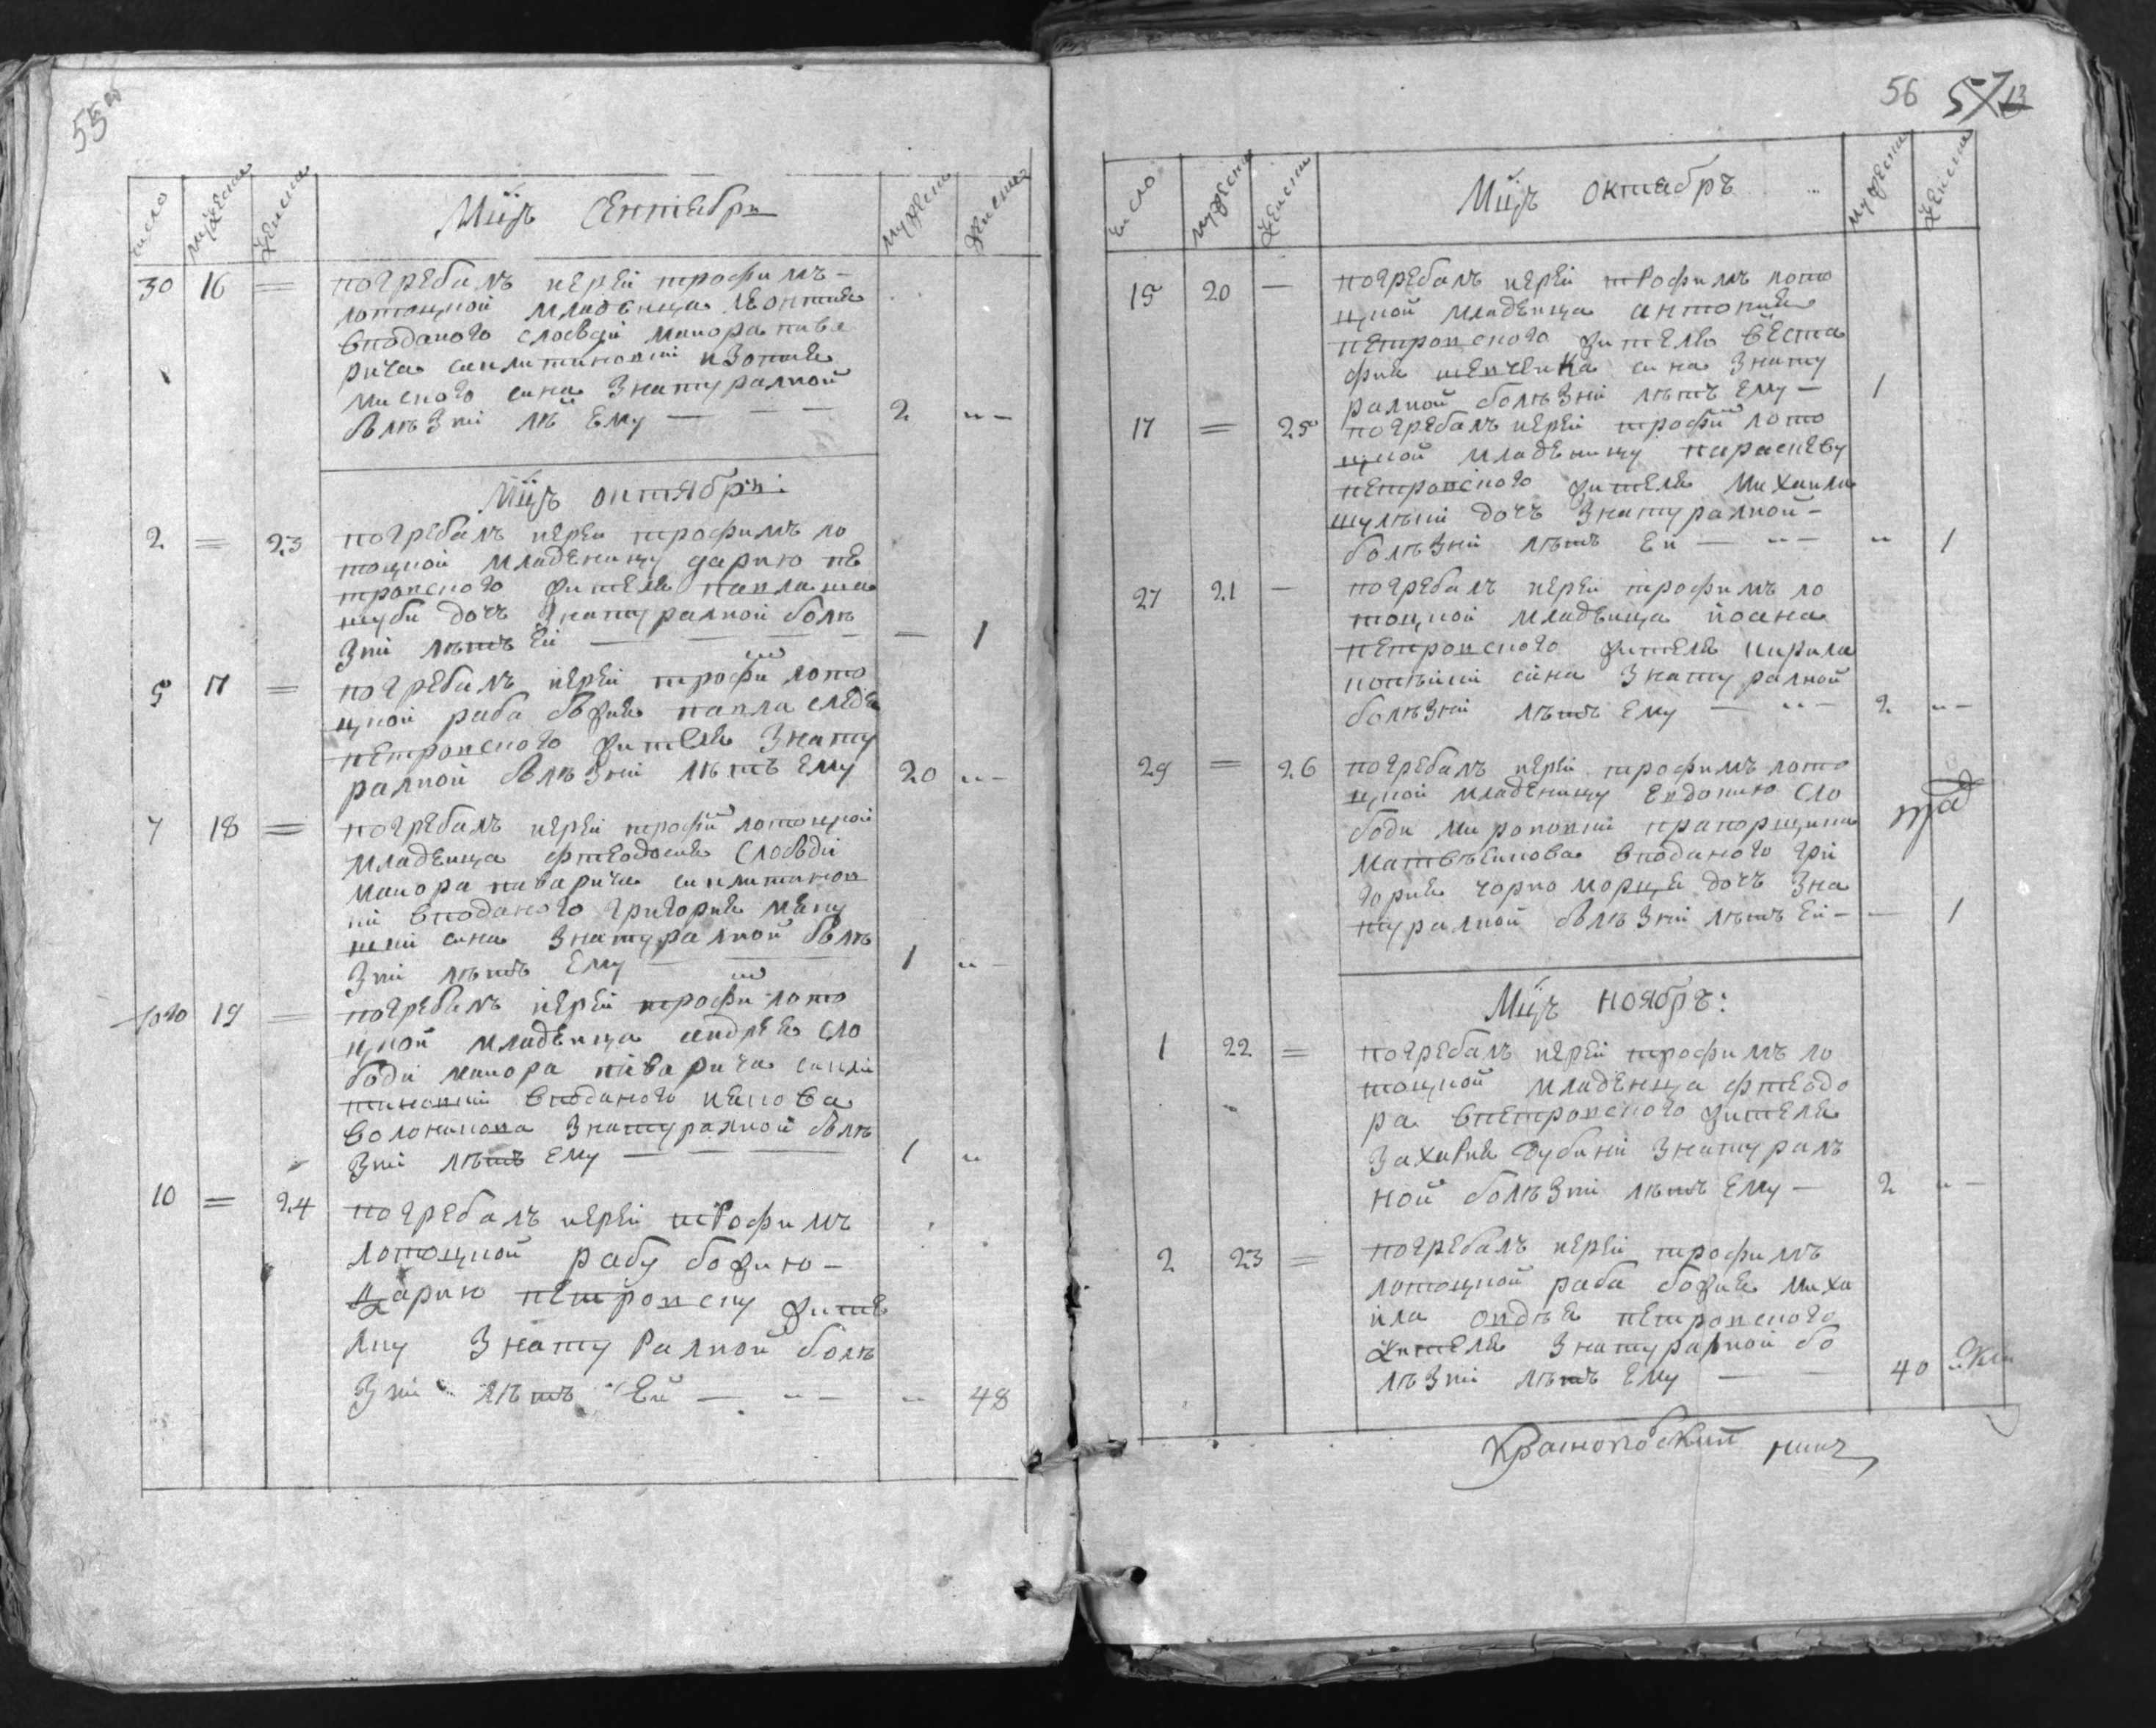 55 об
число мужеска женска Мцъ Сентябрь мужеска женска
30 16 = погребалъ иерей трофимъ –
лотоцкой младенца леонтия
вподаного слободи маиора пива
рича
мского сина знатуралной
болѣзни лѣ ему — — — 2 „ –
Мцъ октябрь:
2 = 23 погребалъ иерей трофимъ ло
тоцкой младеницу дарию пе
тровского жителя павла ша
шуби дочъ знатуралной болѣ
зни лѣтъ ей — — — — — 1
5 17 = погребалъ иерей трофи ло̂то
цкой раба божия павла
петровского жителя знату
ралной болѣзни лѣтъ ему 20 „ –
7 18 = погребалъ иерей трофи лотоцкой
младенца фтеодосия слободи
маиора пиварича
вподаного григория
сина знатуралной болѣ
зни лѣтъ ему — — 1 „ –
10го 19 = погребалъ иерей трофи лото
цкой младенца андрея сло
боди маиора пиварича
вподаного якова
знатуралной болѣ
зни лѣтъ ему — — — 1 „
10 = 24 погребалъ иерей трофимъ
лотоцкой рабу божию –
дарию петровску жите
лку знатуралной болѣ
зни лѣтъ ей — „ – „ 48
56 57
число мужеска женска Мцъ октябрь мужеска женска
15 20 – погребалъ иерей трофимъ лото
цкой младенца антония
петровского жителя евста
фия шевченка сина знату
ралной болѣзни лѣтъ ему – 1
17 = 25 погребалъ иерей трофи лото
цкой младеницу параскеву
петровского жителя михаила
шулѣки дочъ знатуралной –
болѣзни лѣтъ ей — „ – „ 1
27 21 – погребалъ иерей трофимъ ло
тоцкой младенца иоана
петровского жителя кирила
сина знатуралной
болѣзни лѣтъ ему — „ – 2 „ –
29 = 26 погребалъ иерей трофимъ лото
цкой младеницу евдокию сло
боди мироновки прапорщика
матвѣенкова вподаного гри
гория чорноморця дочъ зна
туралной болѣзни лѣтъ ей – — 1
Мцъ ноябръ:
1 22 = погребалъ иерей трофимъ ло
тоцкой младенца фтеодо
ра впетровского жителя
захария дубини знатурал
ной болѣзни лѣтъ ему – 2 „ –
2 23 = погребалъ иерей трофимъ
лотоцкой раба божия миха
ила петровского
жителя знатуралной бо
лѣзни лѣтъ ему — — 40